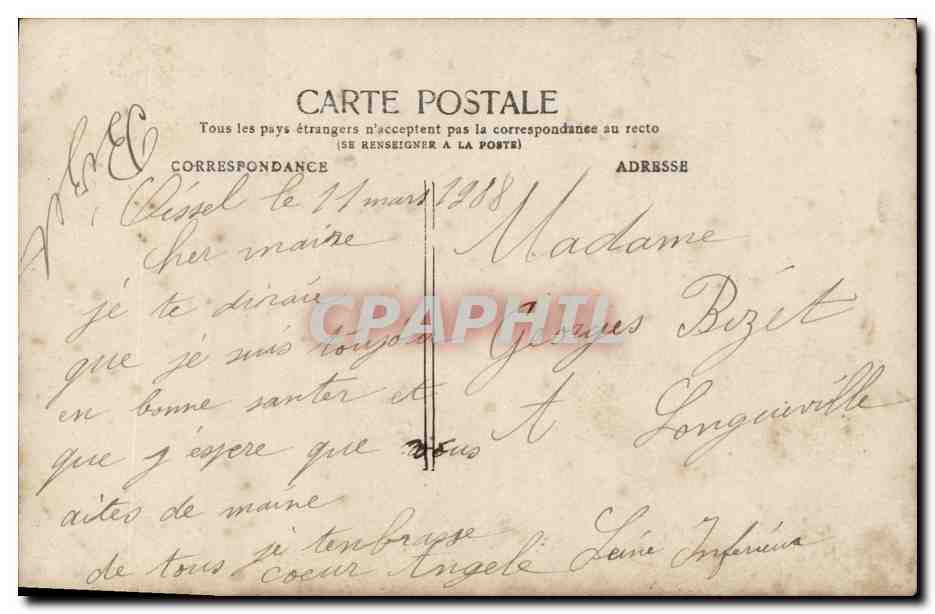 CARTE POSTALE
Tous les pays étrangers n'acceptent pas la correspondance au recto
(SE RENSEIGNER A LA POSTE)
CORRESPONDANCE
ADRESSE
Oissel le 11 mars 1908
Cher maire
je te diraie
que je suis toujour
en bonne santer et
que j'espere que vous
aites de maine
de tous je t'enbrase
coeur Angele
Madame
Georges Bizet
A Longueville
Seine Inferieur
CPAPHIL